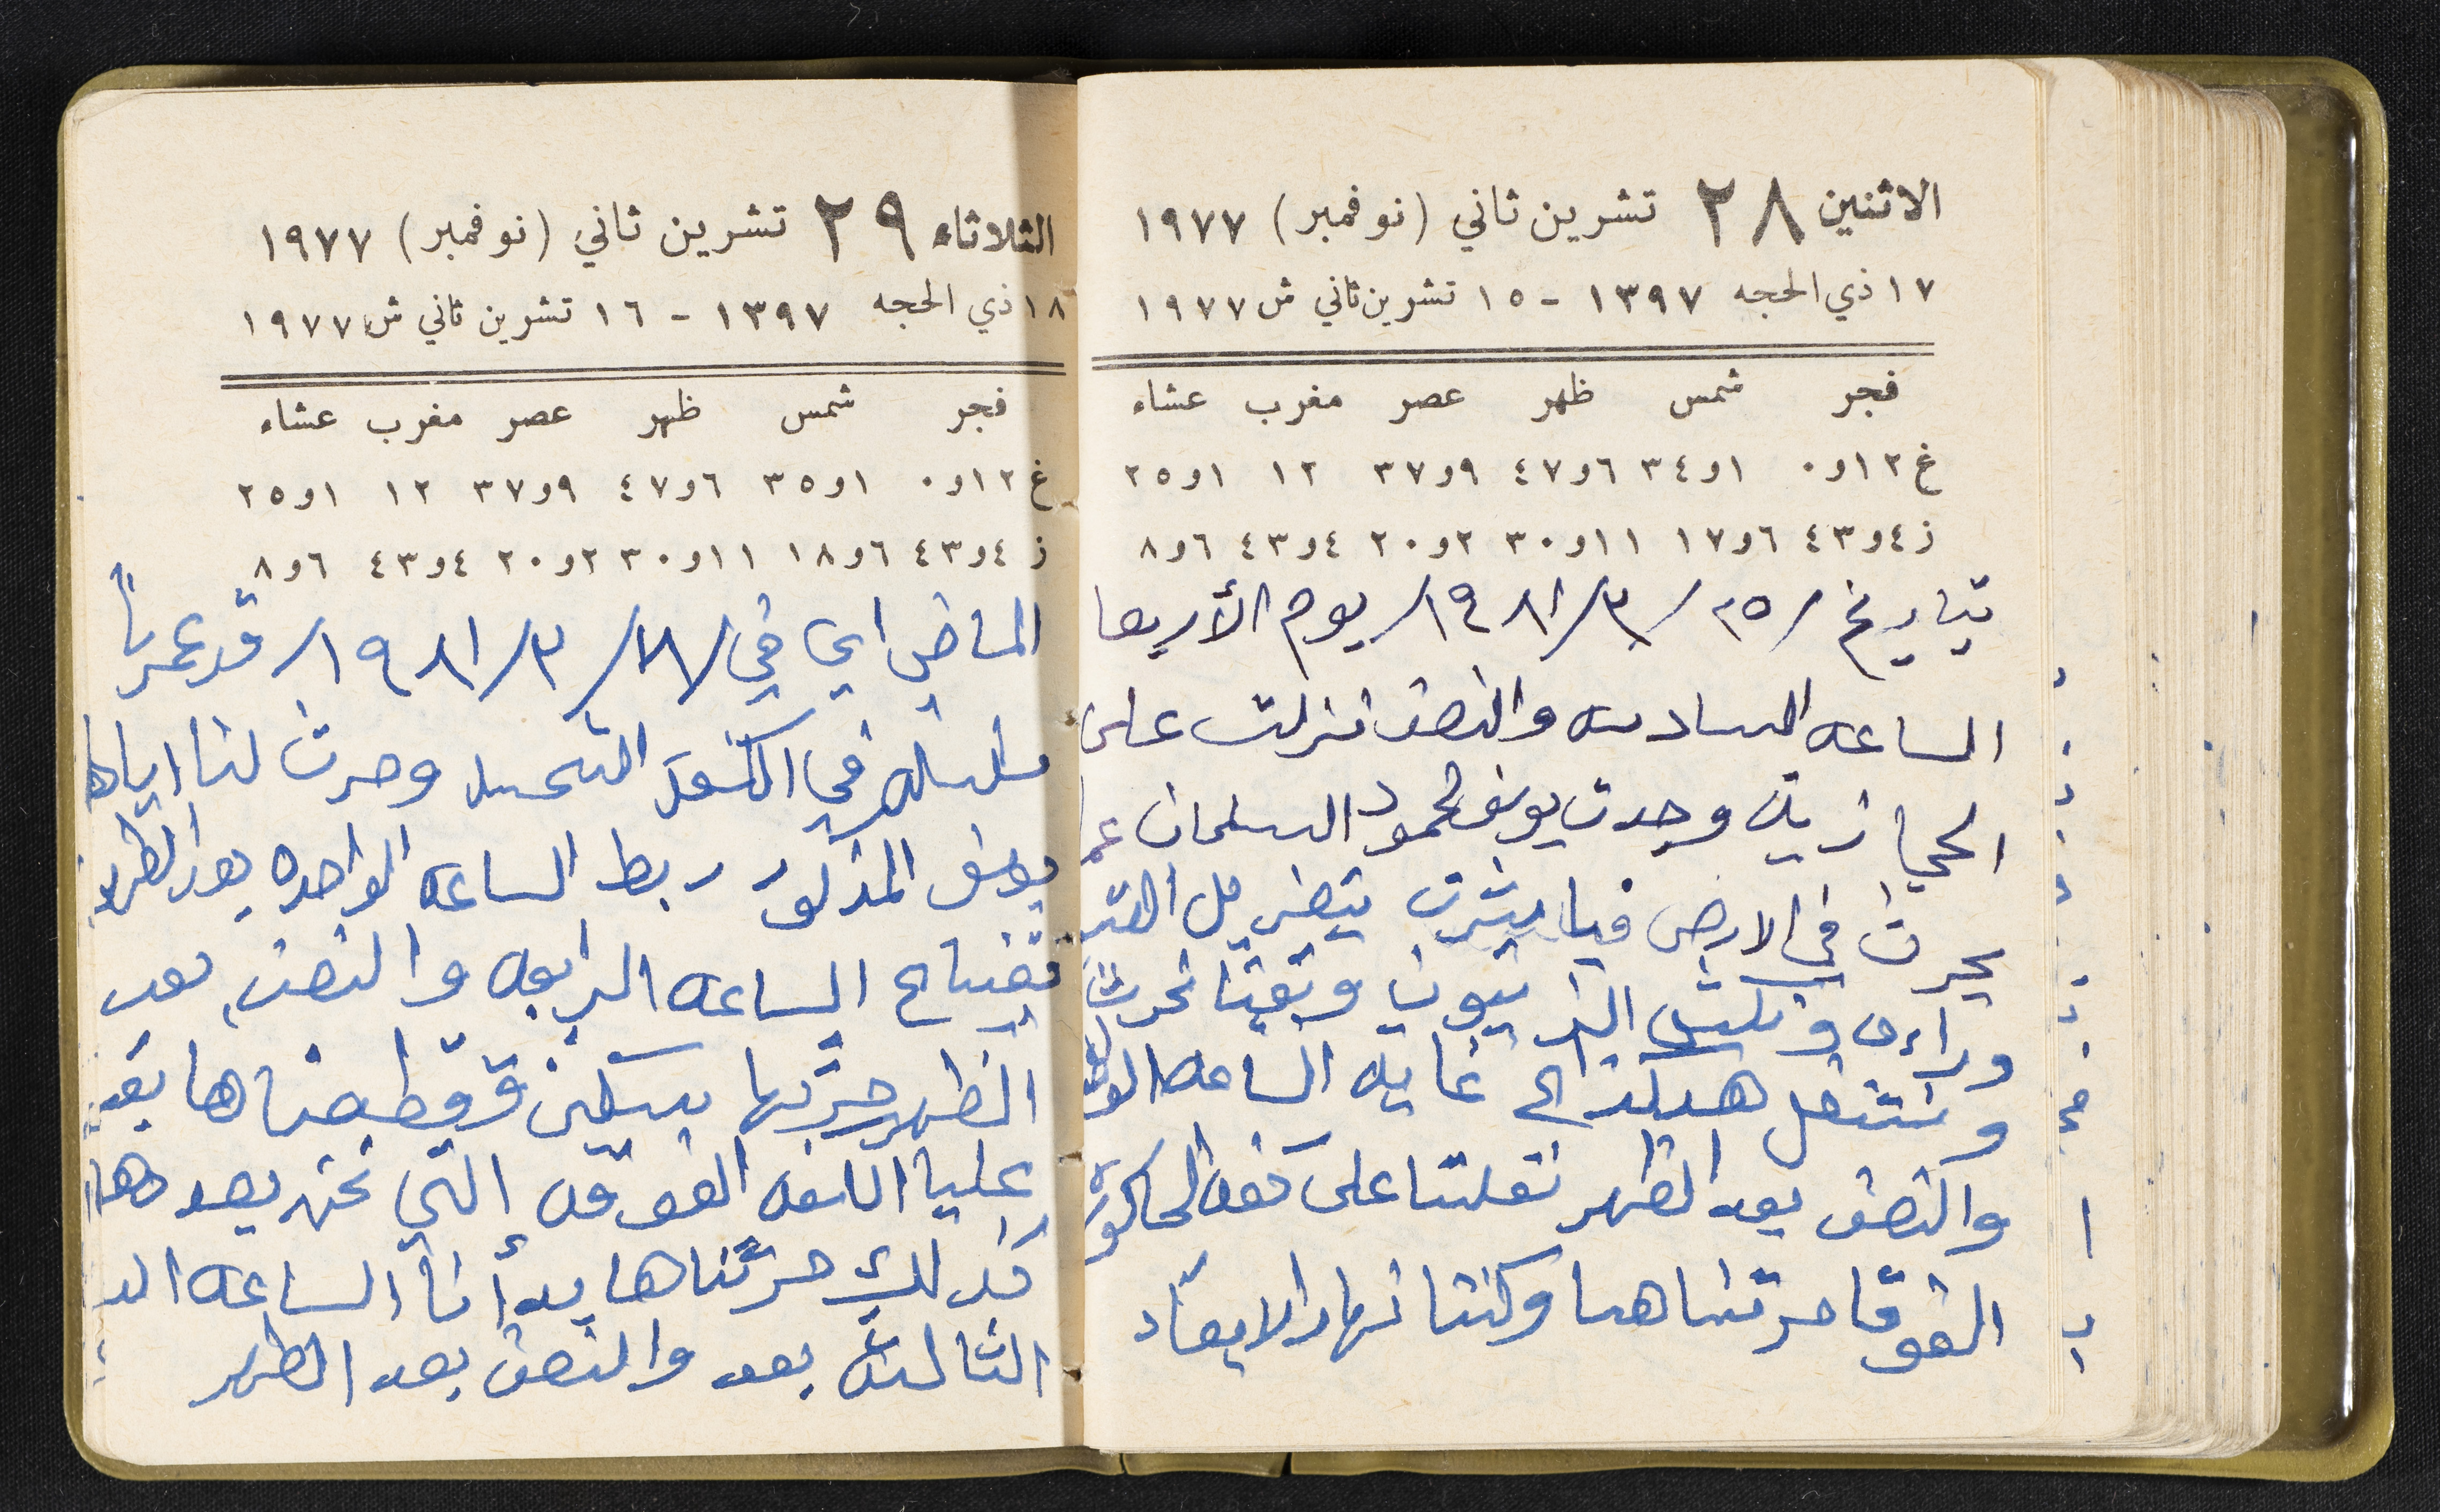 الاثنين ٢٨ تشرين ثاني (نوفمبر) ١٩٧٧
١٧ ذي الحجه ١٣٩٧ - ١٥ تشرين ثاني ش ١٩٧٧
فجر شمس ظهر عصر مغرب عشاء
غ ١٢و٠ ١و٣٤ ٦و٤٧ ٩و٣٧ ١٢ ١و٢٥
ز ٤و٤٣ ٦و١٧ ١١و٣٠ ٢و٢٠ ٤و٤٣ ٦و٨
بتاريخ /٢٥/٣/١٩٨١/ يوم الأربعا
الساعه السادسه والنصف نزلت على
الحجازيه وجدت يوسف لحمود السلمان عم
يحرث في الارض فيا بيثرب بتضر مل
وراءه ونكش الزيتون وبقينا نحرث
ونشتغل هيك الى غاية الساعه
والنصف بعد الظهر نقلنا على كفة الحاكوره
الفوقا حرثناها وكنا نهار الابعاد
الثلاثاء ٢٩ تشرين ثاني (نوفمبر) ١٩٧٧
١٨ ذي الحجه ١٣٩٧ - ١٦ تشرين ثاني ش ١٩٧٧
فجر شمس ظهر عصر مغرب عشاء
غ ١٢و٠ ١و٣٥ ٦و٤٧ ٩و٣٧ ١٢ ١و٢٥
ز ٤و٤٣ ٦و١٨ ١١و٣٠ ٢و٢٠ ٤و٤٣ ٦و٨
الماضي اي في /٣/١٩٨١/ قد عمرنا
في وحرث لنا اياها
يوسف المذكور ربط الساعه الواحده بعد الظهر
الساعه الرابعه والنصف بعد
الظهر حرثها وقطعناها
عليا الفوقه إلتي نحن بعدها
كذلك حرثناها بدأنا الساعه الد
الثالثه بعد والنصف بعد الظهر